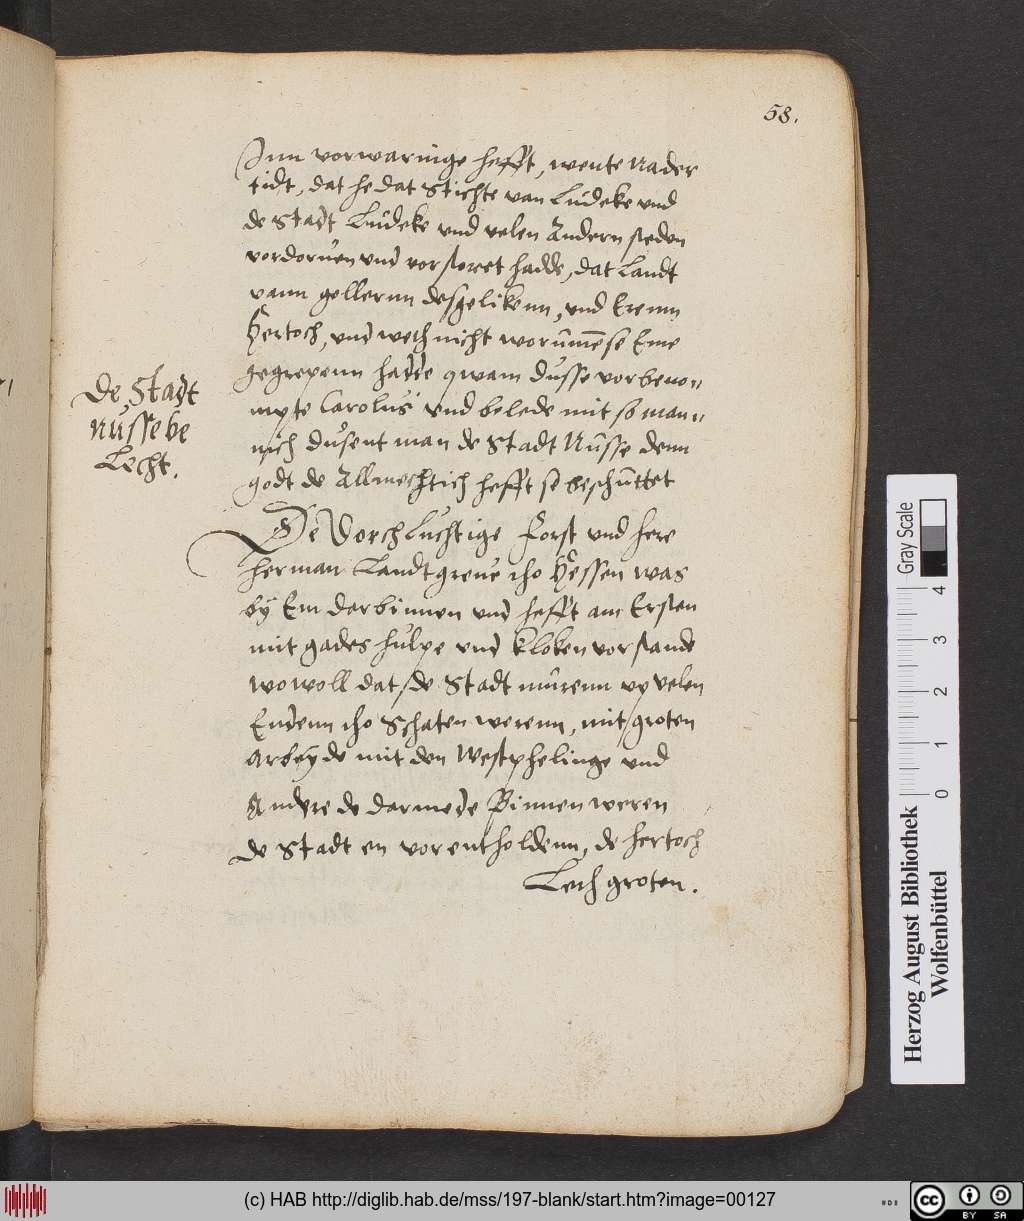 58.
Inn vorwaringe hefft, wente na der
tidt, dat he dat Stichte van Lüdeke vnd
de Stadt Lüdeke vnd velen Andern steden
vordoruen vnd vorstoret hadde, dat Landt
vann gellernn desgelikenn, vnd Erenn
Hertoch, vnd weth nicht worümme se Ene
gegrepenn hadde qwam düsse vorbeno„
mpte Carolus vnd belede mit so man„
nich dusent man de Stadt Nüsse denn
godt de Allmechtich hefft se beschüttet
De Stadt
nüsse be
Lecht.
De Dorchluchtige Forst vnd here
herman Landtgreue tho Hessen was
by Em darbinnen vnd hefft am Ersten
mit gades hulpe vnd kloken vorstande
wowoll dat de Stadt mürenn vp velen
Endenn tho Schaten werenn, mit groten
Arbeyde mit den Westphelinge vnd
Andre de darmede Binnen weren
de Stadt en vorentholdenn, de hertoch
Leth groten.
Gray Scale
4
3
2
1
0
Herzog August Bibliothek
Wolfenbüttel
(c) HAB http://diglib.hab.de/mss/197-blank/start.htm?image=00127
cc BY SA